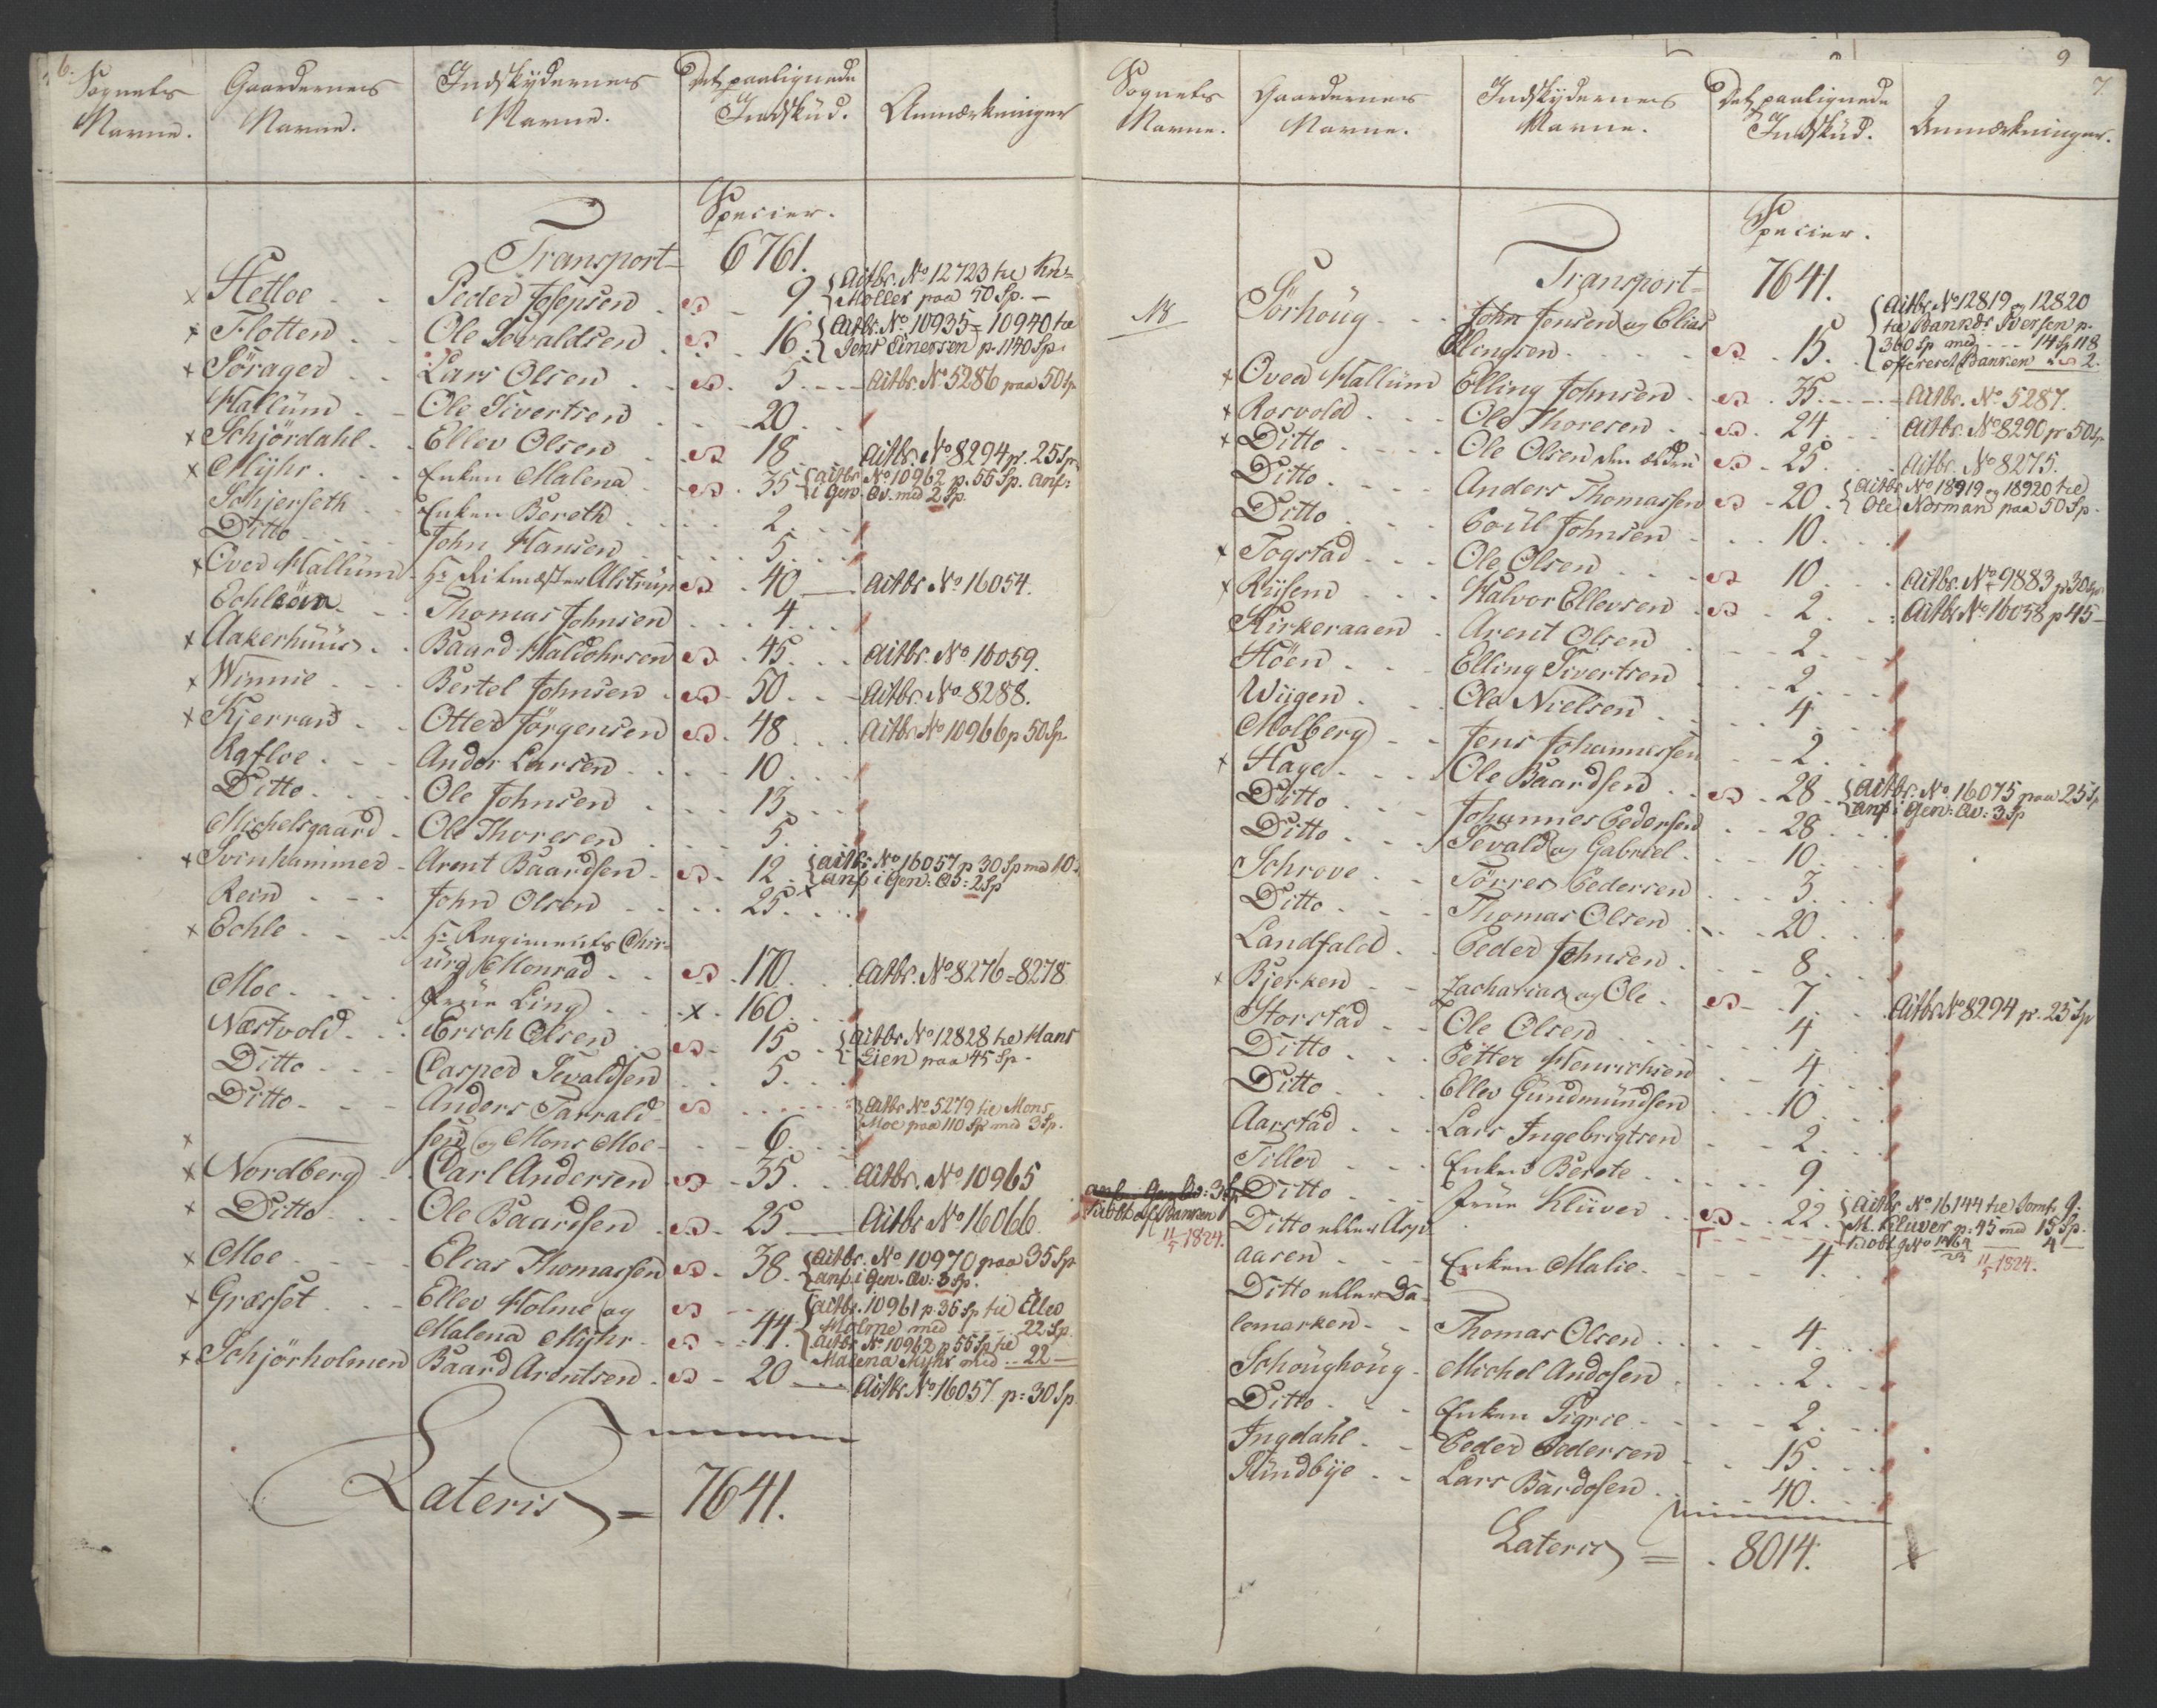 6.
Sognets Navne. Gaardernes Navne. Indskydernes Navne. Det paalignede Indskud. Anmærkninger
Specier.
Transport 6761.
x Hetloe Peder Johnsen 9. Actbr. No 12723 til
Møller paa 50 Sp.
x Flotten Ole Sivaldsen 16. Actbr. No 10935 = 10940 til
Jens Einersen p. 1140 Sp.
x Sörager Lars Olsen 5. Actbr. No 5286 paa 50 Sp
Hallüm Ole Sivertsen 20.
x Schjördahl Ellev Olsen 18 Actbr. No 8294 p. 25 Sp
x Myhr Enken Malena 35 Actbr No 10962 p. 55 Sp. anf:
i Gen. Qv. med 2 Sp.
Schjerseth Enken Bereth 2.
Ditto John Hansen 5.
x Over Hallüm Hr Ritmester Alstrup 40 Actbr No 16054.
Echle Thomas Johnsen 4.
x Aakerhuus Baard Haldohrsen 45. Actbr. No 16059.
x Winnie Bertel Johnsen 50. Actbr. No 8288.
x Kjerran Otter Jörgensen 48. Actbr No 10966 p 50 Sp.
Rafloe Ander Larsen 10.
Ditto Ole Johnsen 13.
Michelsgaard Ole Thoresen 5.
x Svinhammer Arent Baardsen 12 Actbr. No 16057 p 30 Sp med 10
anf i Gen: Qv: 2 Sp
Rein John Olsen 25.
x Echle Hr Regiments Chir-
urg Monrad 170. Actbr. No 8276 = 8278
Moe Frue Ling x 160.
Næstvold Erich Olsen 15 Actbr No 12828 til Hans
Eien paa 45 Sp.
Ditto Casper Sevaldsen 5.
Ditto Anders Tarrald Actbr No 5279 til Mons
Moe paa 110 Sp med 3 Sp.
x sen og Mons Moe 6.
x Nordberg Carl Andersen 35. Actbr. No 10965
x Ditto Ole Baardsen 25 Actbr No 16066.
x Moe Elias Thomassen 38. Actbr. No 10970 paa 35 Sp
anf i Gen. Qv: 3 Sp.
x Græsset Ellev Holme og Actbr. 10961 p. 35 Sp til Ellev
Holme med 22 Sp.
Malena Myhr 44. Actbr No 10962 p 55 Sp til
Malena Myhr med 22
x Schjörholmen Baard Arentsen 20 Actbr No 16057 p: 30 Sp
Lateris = 7641.
9
7.
Sognets Navne. Gaardernes Navne. Indskydernes Navne. Det paalignede Indskud. Anmærkninger.
Specier.
Transport 7641.
Sörhoug John Jensen og Elias Actbr No 12819 og 12820
til Iversen p.
Elingsen 15. 360 Sp med 14 Sp 118
Banken 2.
x Over Hallüm Elling Johnsen 35. Actbr. No 5287.
x Rosvold Ole Thoresen 24. Actbr. No 8290 p 50 Sp
x Ditto Ole Olsen den ældre 25. Actbr. No 8275.
Ditto Anders Thomassen 20. Actbr No 18919 og 18920 til
Ole Norman paa 50 Sp.
Ditto Poül Johnsen 10.
x Togstad Ole Olsen 10 Actbr. No 9883 p 30 Sp
x Riisem Halvor Ellevsen 2. Actbr No 16058 p 45
Kirkeraaen Arent Olsen 2.
Höen Elling Sivertsen 2.
Wiigen Ole Nielsen 4.
Molberg Jens Johannessen 2.
x Hage Ole Baardsen 28. Actbr. No. 16075 paa 25 Sp
anf i Gen: Qv: 3 Sp
Ditto Johannes Pedersen 28.
Ditto Sevald og Gabriel 10.
Schrove Törres Pedersen 3.
Ditto Thomas Olsen 20.
Landfald Peder Johnsen 8.
x Bjerken Zacharias og Ole 7. Actbr No 8294 p. 25 Sp
Storstad Ole Olsen 4.
Ditto Petter Henrichsen 4.
Ditto Ellev Gundmündsen 10.
Aarstad Lars Ingebrigtsen 2.
Tiller Enken Berete 9.
anf. Gen Qv: 3 Sp Ditto Frue Klüver 22. Actbr No 16144 til
M. Klüver p. 45 med 15 Sp.
Banken Ditto eller Asp-
11/5 1824.
aasen Enken Malie 4. 11/5 1824.
Ditto eller Da-
lemarken Thomas Olsen 4.
Schoughoug Michel Andosen 2.
Ditto Enken Sigrie 2.
Ingdahl Peder Pedersen 15.
Sundbye Lars Bardosen 40.
Lateris = 8014.